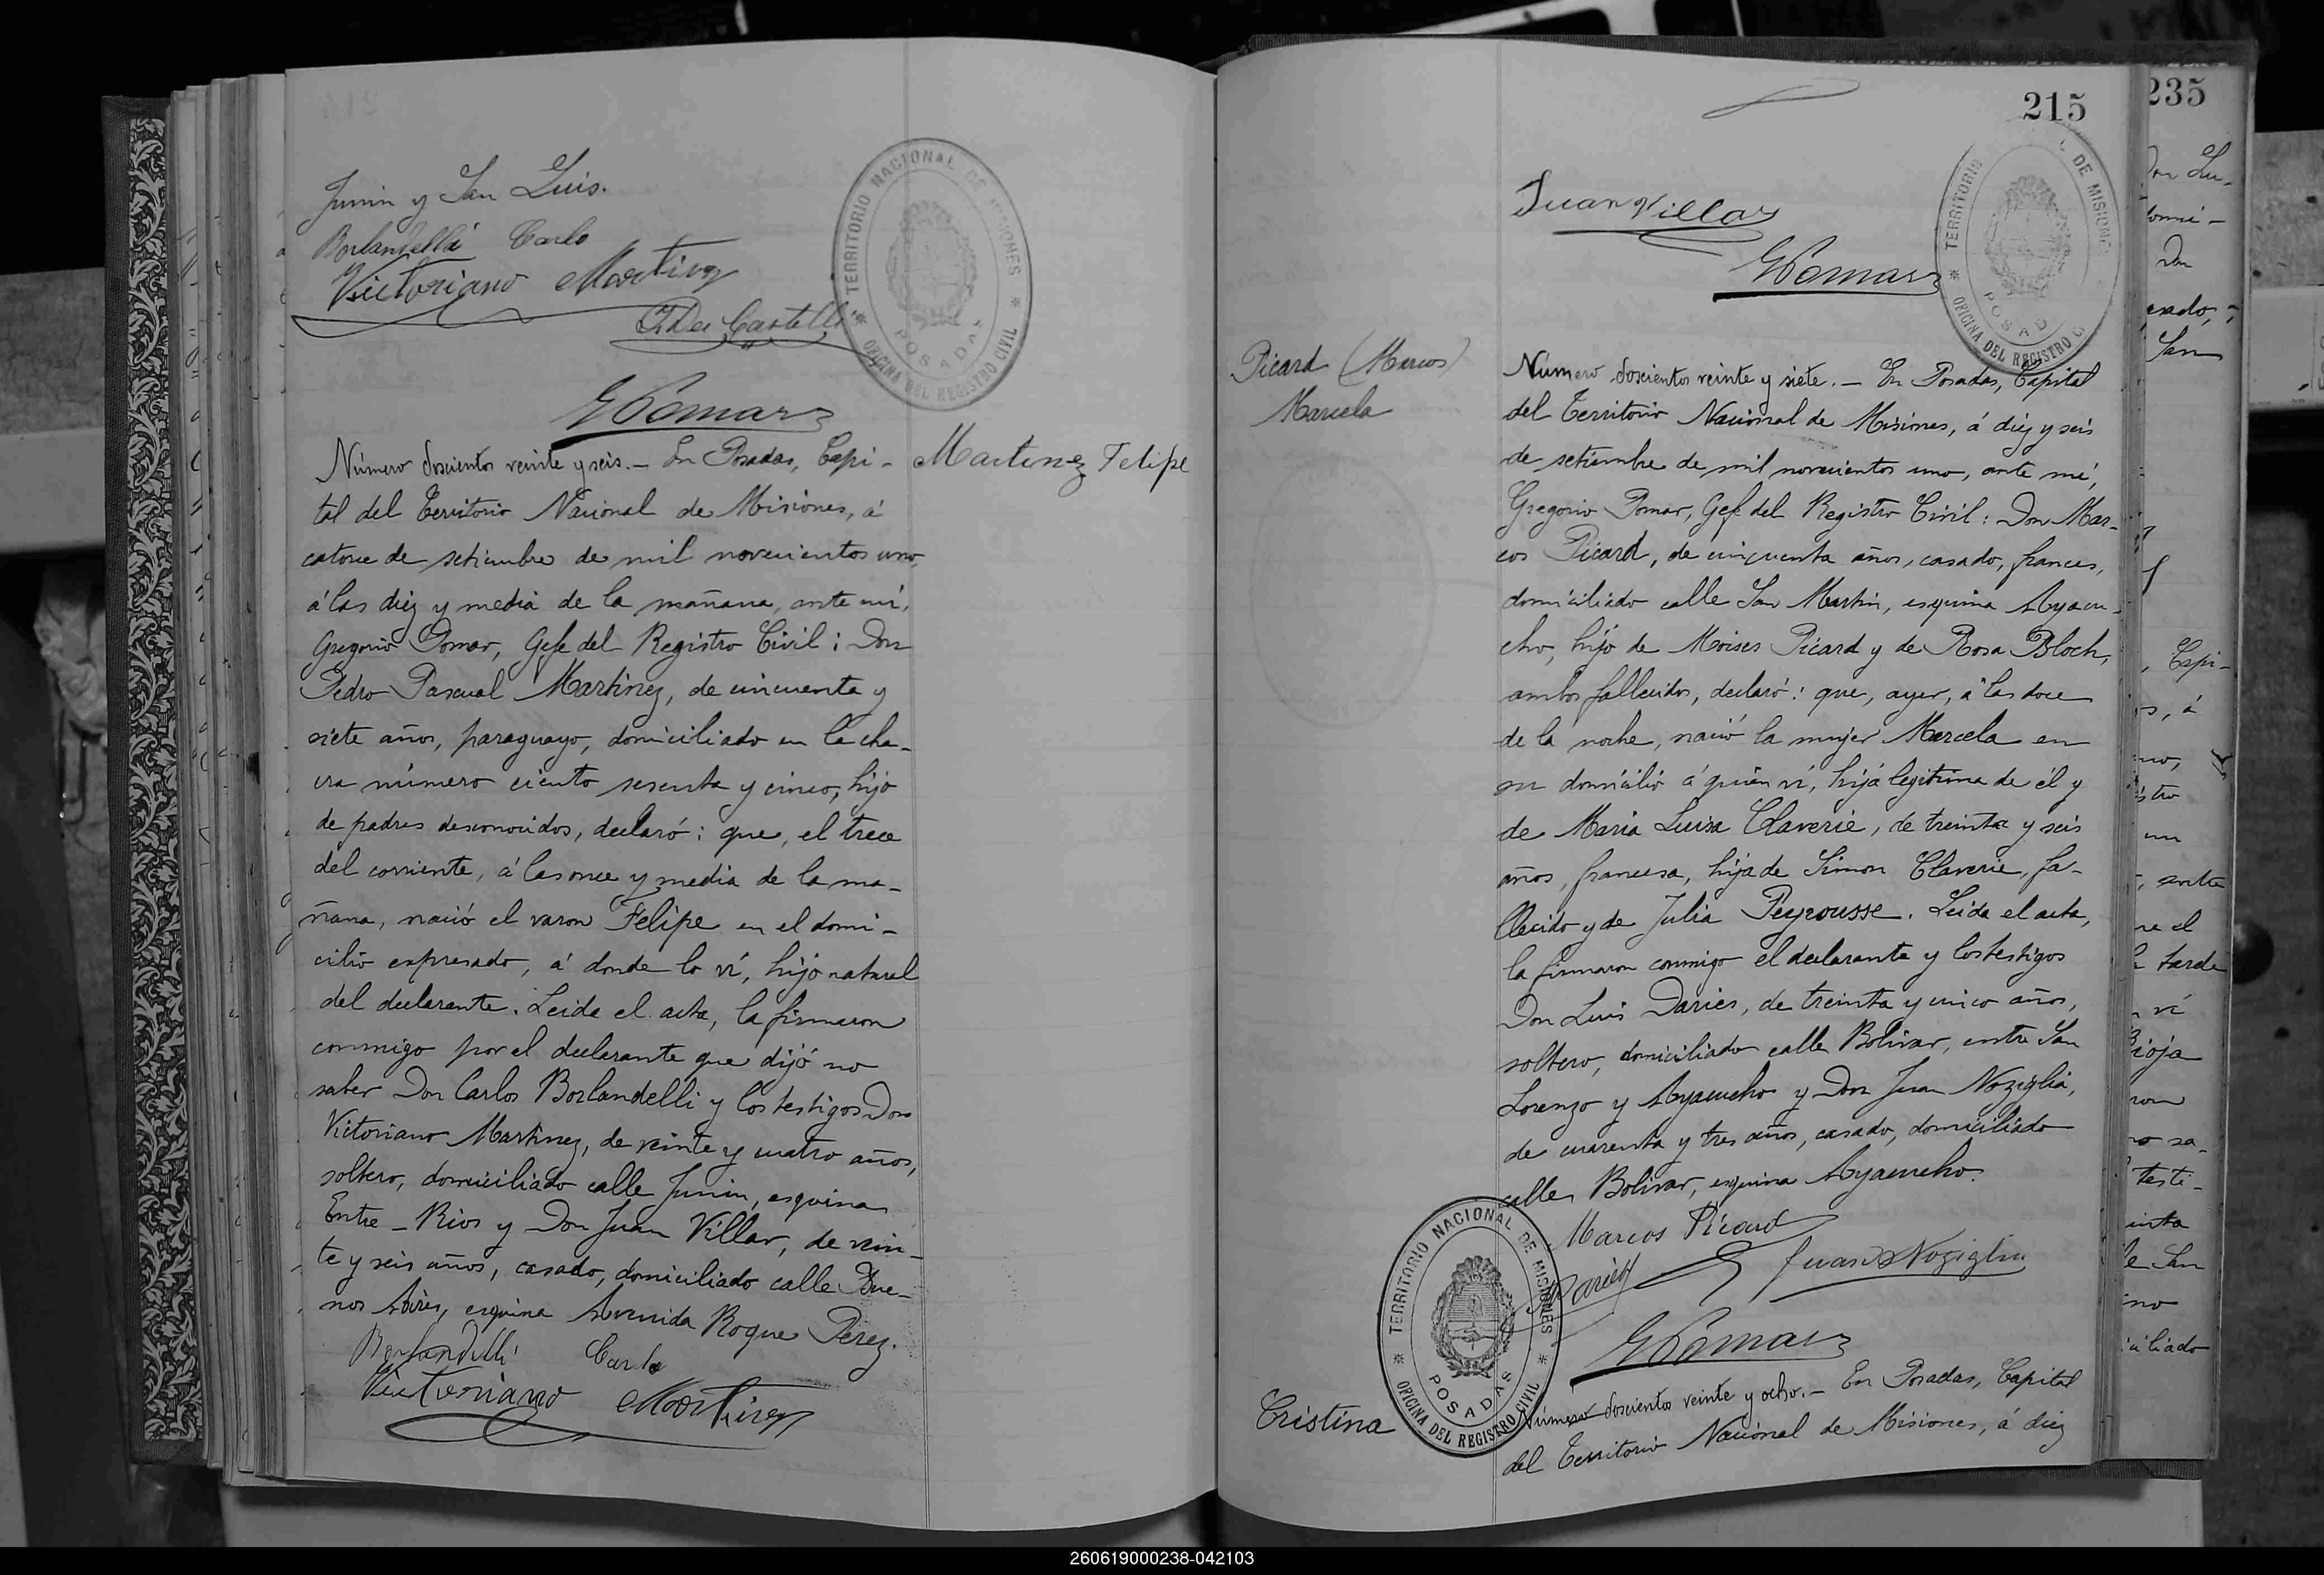 Junin y San Luis.
Borlandelli Carlo
Victoriano Martinez
G Pomar
Número doscientos veinte y seis.— En Posadas, Capi-
tal del Territorio Nacional de Misiones, á
catorce de setiembre de mil novecientos uno,
á las diez y media de la mañana, ante mí,
Gregorio Pomar, Gefe del Registro Civil: Don
Pedro Pascual Martinez, de cincuenta y
siete años, paraguayo, domiciliado en la cha-
cra número ciento sesenta y cinco, hijo
de padres desconocidos, declaró: que, el trece
del corriente, á las once y media de la ma-
ñana, nació el varon Felipe en el domi-
cilio expresado, á donde lo ví, hijo natural
del declarante. Leida el acta, la firmaron
conmigo por el declarante que dijó no
saber Don Carlos Borlandelli y los testigos Don
Victoriano Martinez, de veinte y cuatro años,
soltero, domiciliado calle Junin, esquina
Entre-Rios y Don Juan Villar, de vein-
te y seis años, casado, domiciliado calle Bue-
nos Aires, esquina Avenida Roque Perez.
Borlandelli Carlo
Victoriano Martinez
Martinez Felipe
TERRITORIO NACIONAL DE MISIONES
POSADAS
OFICINA DEL REGISTRO CIVIL
215
Juan Villar
G Pomar
TERRITORIO DE MISIONES
POSAD
OFICINA DEL REGISTRO C
Picard (Marcos)
Marcela
Número doscientos veinte y siete.— En Posadas, Capital
del Territorio Nacional de Misiones, á diez y seis
de setiembre de mil novecientos uno, ante mí,
Gregorio Pomar, Gefe del Registro Civil: Don Mar-
cos Picard, de cincuenta años, casado, frances,
domiciliado calle San Martin, esquina Ayacu-
cho, hijo de Moises Picard y de Rosa Bloch,
ambos fallecidos, declaró: que, ayer, á las doce
de la noche, nació la mujer Marcela en
su domicilio á quien ví, hija legitima de él y
de Maria Luisa Claverie, de treinta y seis
años, francesa, hija de Simon Claverie, fa-
llecido y de Julia Peyrousse. Leida el acta,
la firmaron conmigo el declarante y los testigos
Don Luis Daries, de treinta y cinco años,
soltero, domiciliado calle Bolivar, entre San
Lorenzo y Ayacucho y Don Juan Noziglia,
de cuarenta y tres años, casado, domiciliado
calle Bolivar, esquina Ayacucho.
Marcos Picard
Daries Juan Noziglia
G Pomar
TERRITORIO NACIONAL DE MISIONES
POSADAS
OFICINA DEL REGISTRO CIVIL
Cristina
Número doscientos veinte y ocho.— En Posadas, Capital
del Territorio Nacional de Misiones, á diez
235
Don Lu-
Don
San
, Capi-
, á
un
, entre
el
tarde
ví
Rioja
testi-
San
260619000238-042103